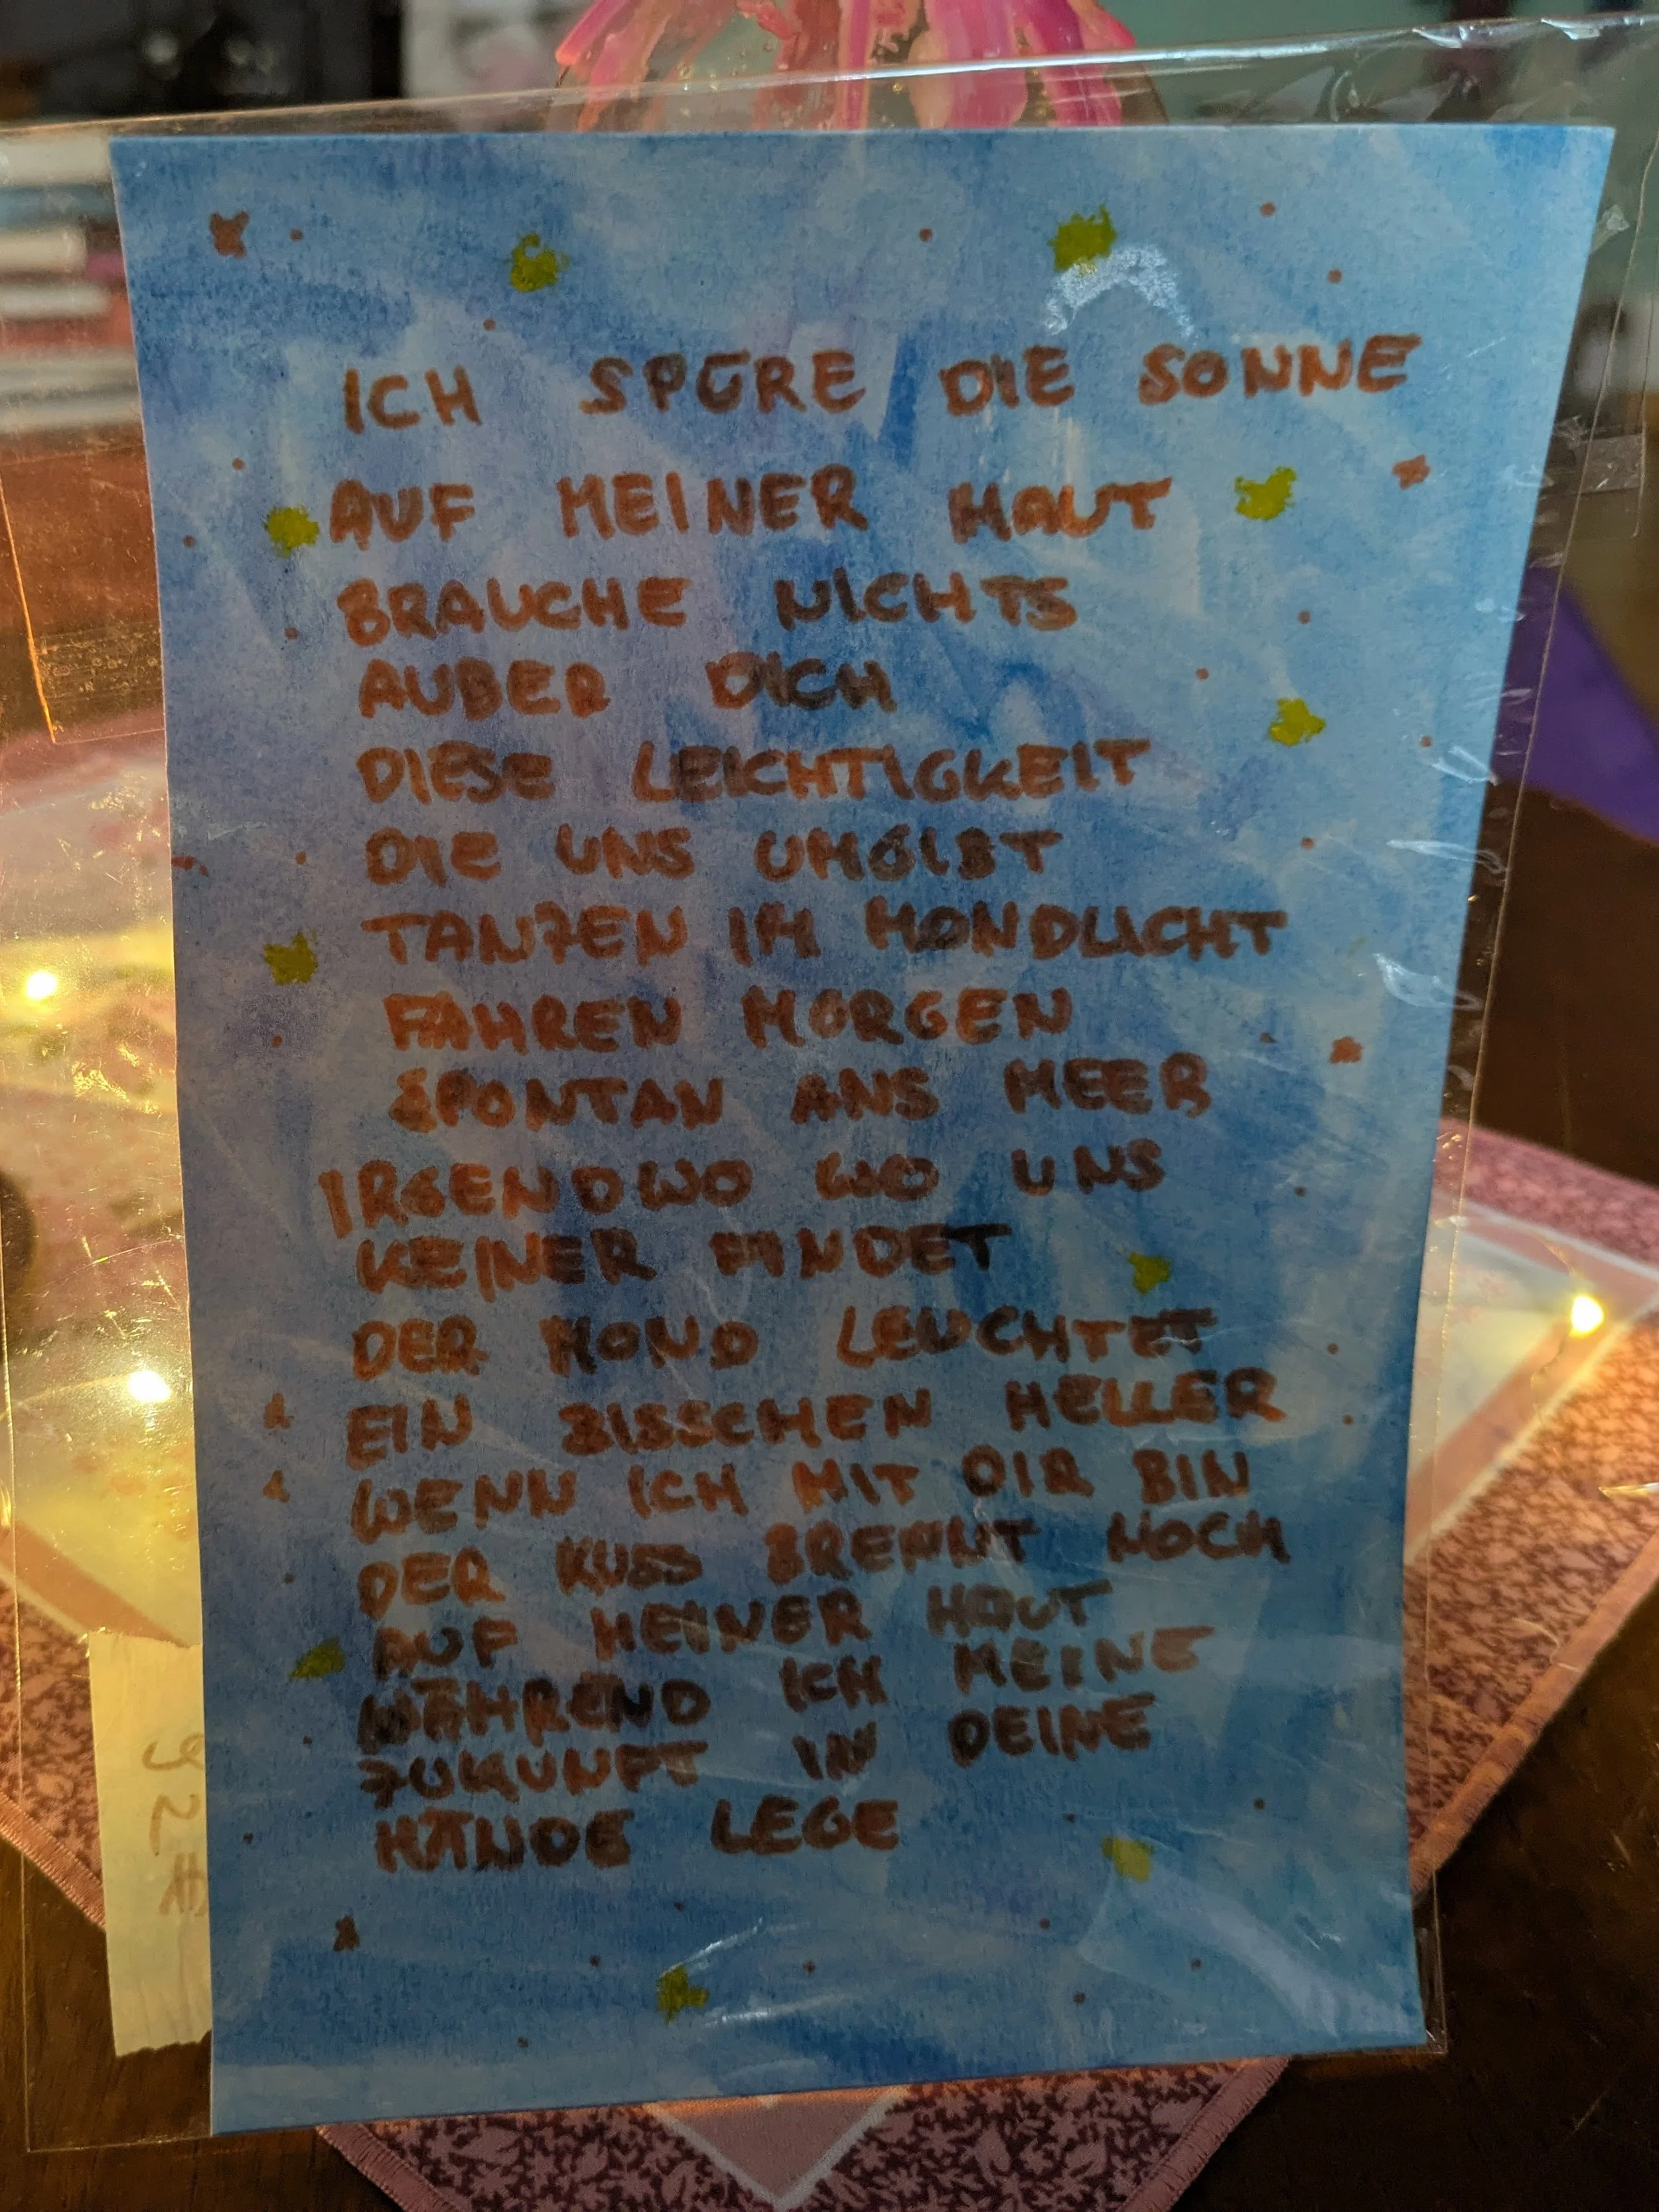 ICH SPÜRE DIE SONNE
AUF MEINER HAUT
BRAUCHE NICHTS
AUßER DICH
DIESE LEICHTIGKEIT
DIE UNS UMGIBT
TANZEN IM MONDLICHT
FAHREN MORGEN
SPONTAN ANS MEER
IRGENDWO WO UNS
KEINER FINDET
DER MOND LEUCHTET
EIN BISSCHEN HELLER
WENN ICH MIT DIR BIN
DER KUSS BRENNT NOCH
AUF MEINER HAUT
WÄHREND ICH MEINE
ZUKUNFT IN DEINE
HÄNDE LEGE